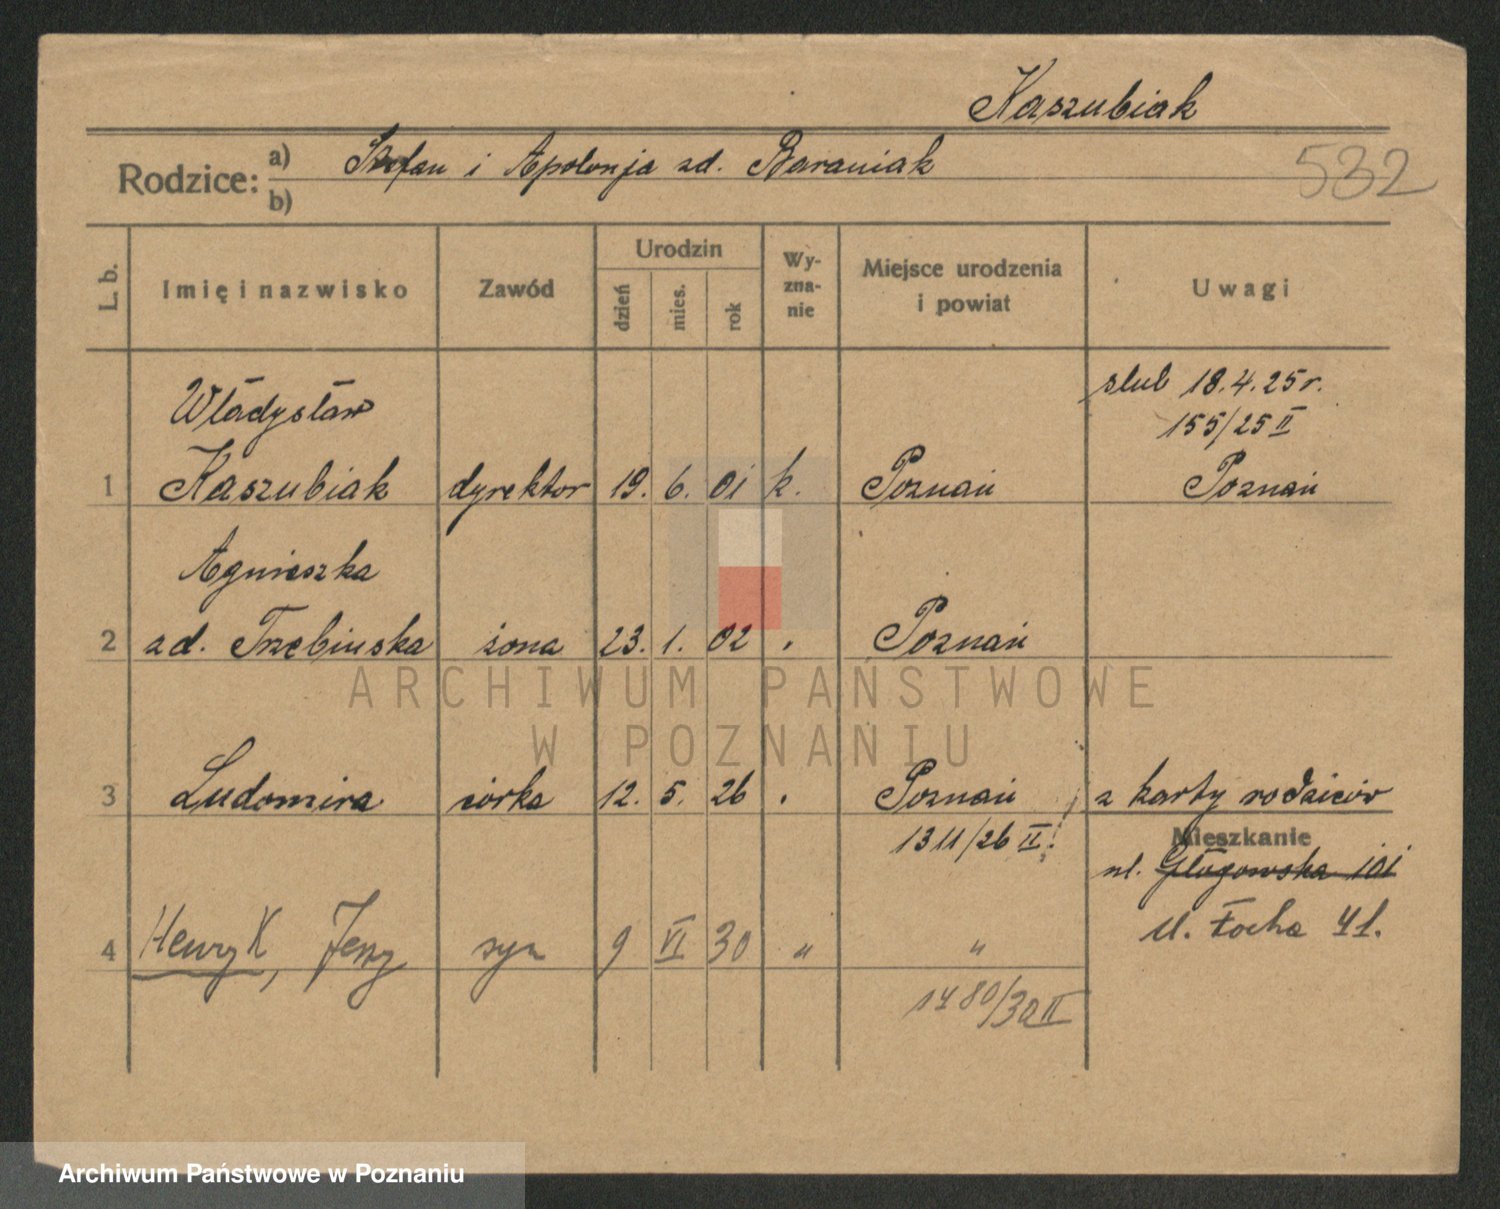 Kaszubiak
Rodzice: a) Stefan i Apolonja zd. Baraniak
b)
532
L. b. Imię i nazwisko Zawód Urodzin dzień mies. rok Wy-zna-nie Miejsce urodzenia i powiat Uwagi
Władysław
ślub 18.4.25 r.
155/25 II
1 Kaszubiak dyrektor 19. 6. 01 k. Poznań Poznań
Agnieszka
2 zd. Trzebińska żona 23. 1. 02 " Poznań
3 Ludomira córka 12. 5. 26 " Poznań z karty rodziców
1311/26 II
Mieszkanie
ul. Głogowska 101
ul. Focha 41.
4 Henryk, Jerzy syn 9 VI 30 " "
1780/30 II
ARCHIWUM PAŃSTWOWE
W POZNANIU
Archiwum Państwowe w Poznaniu